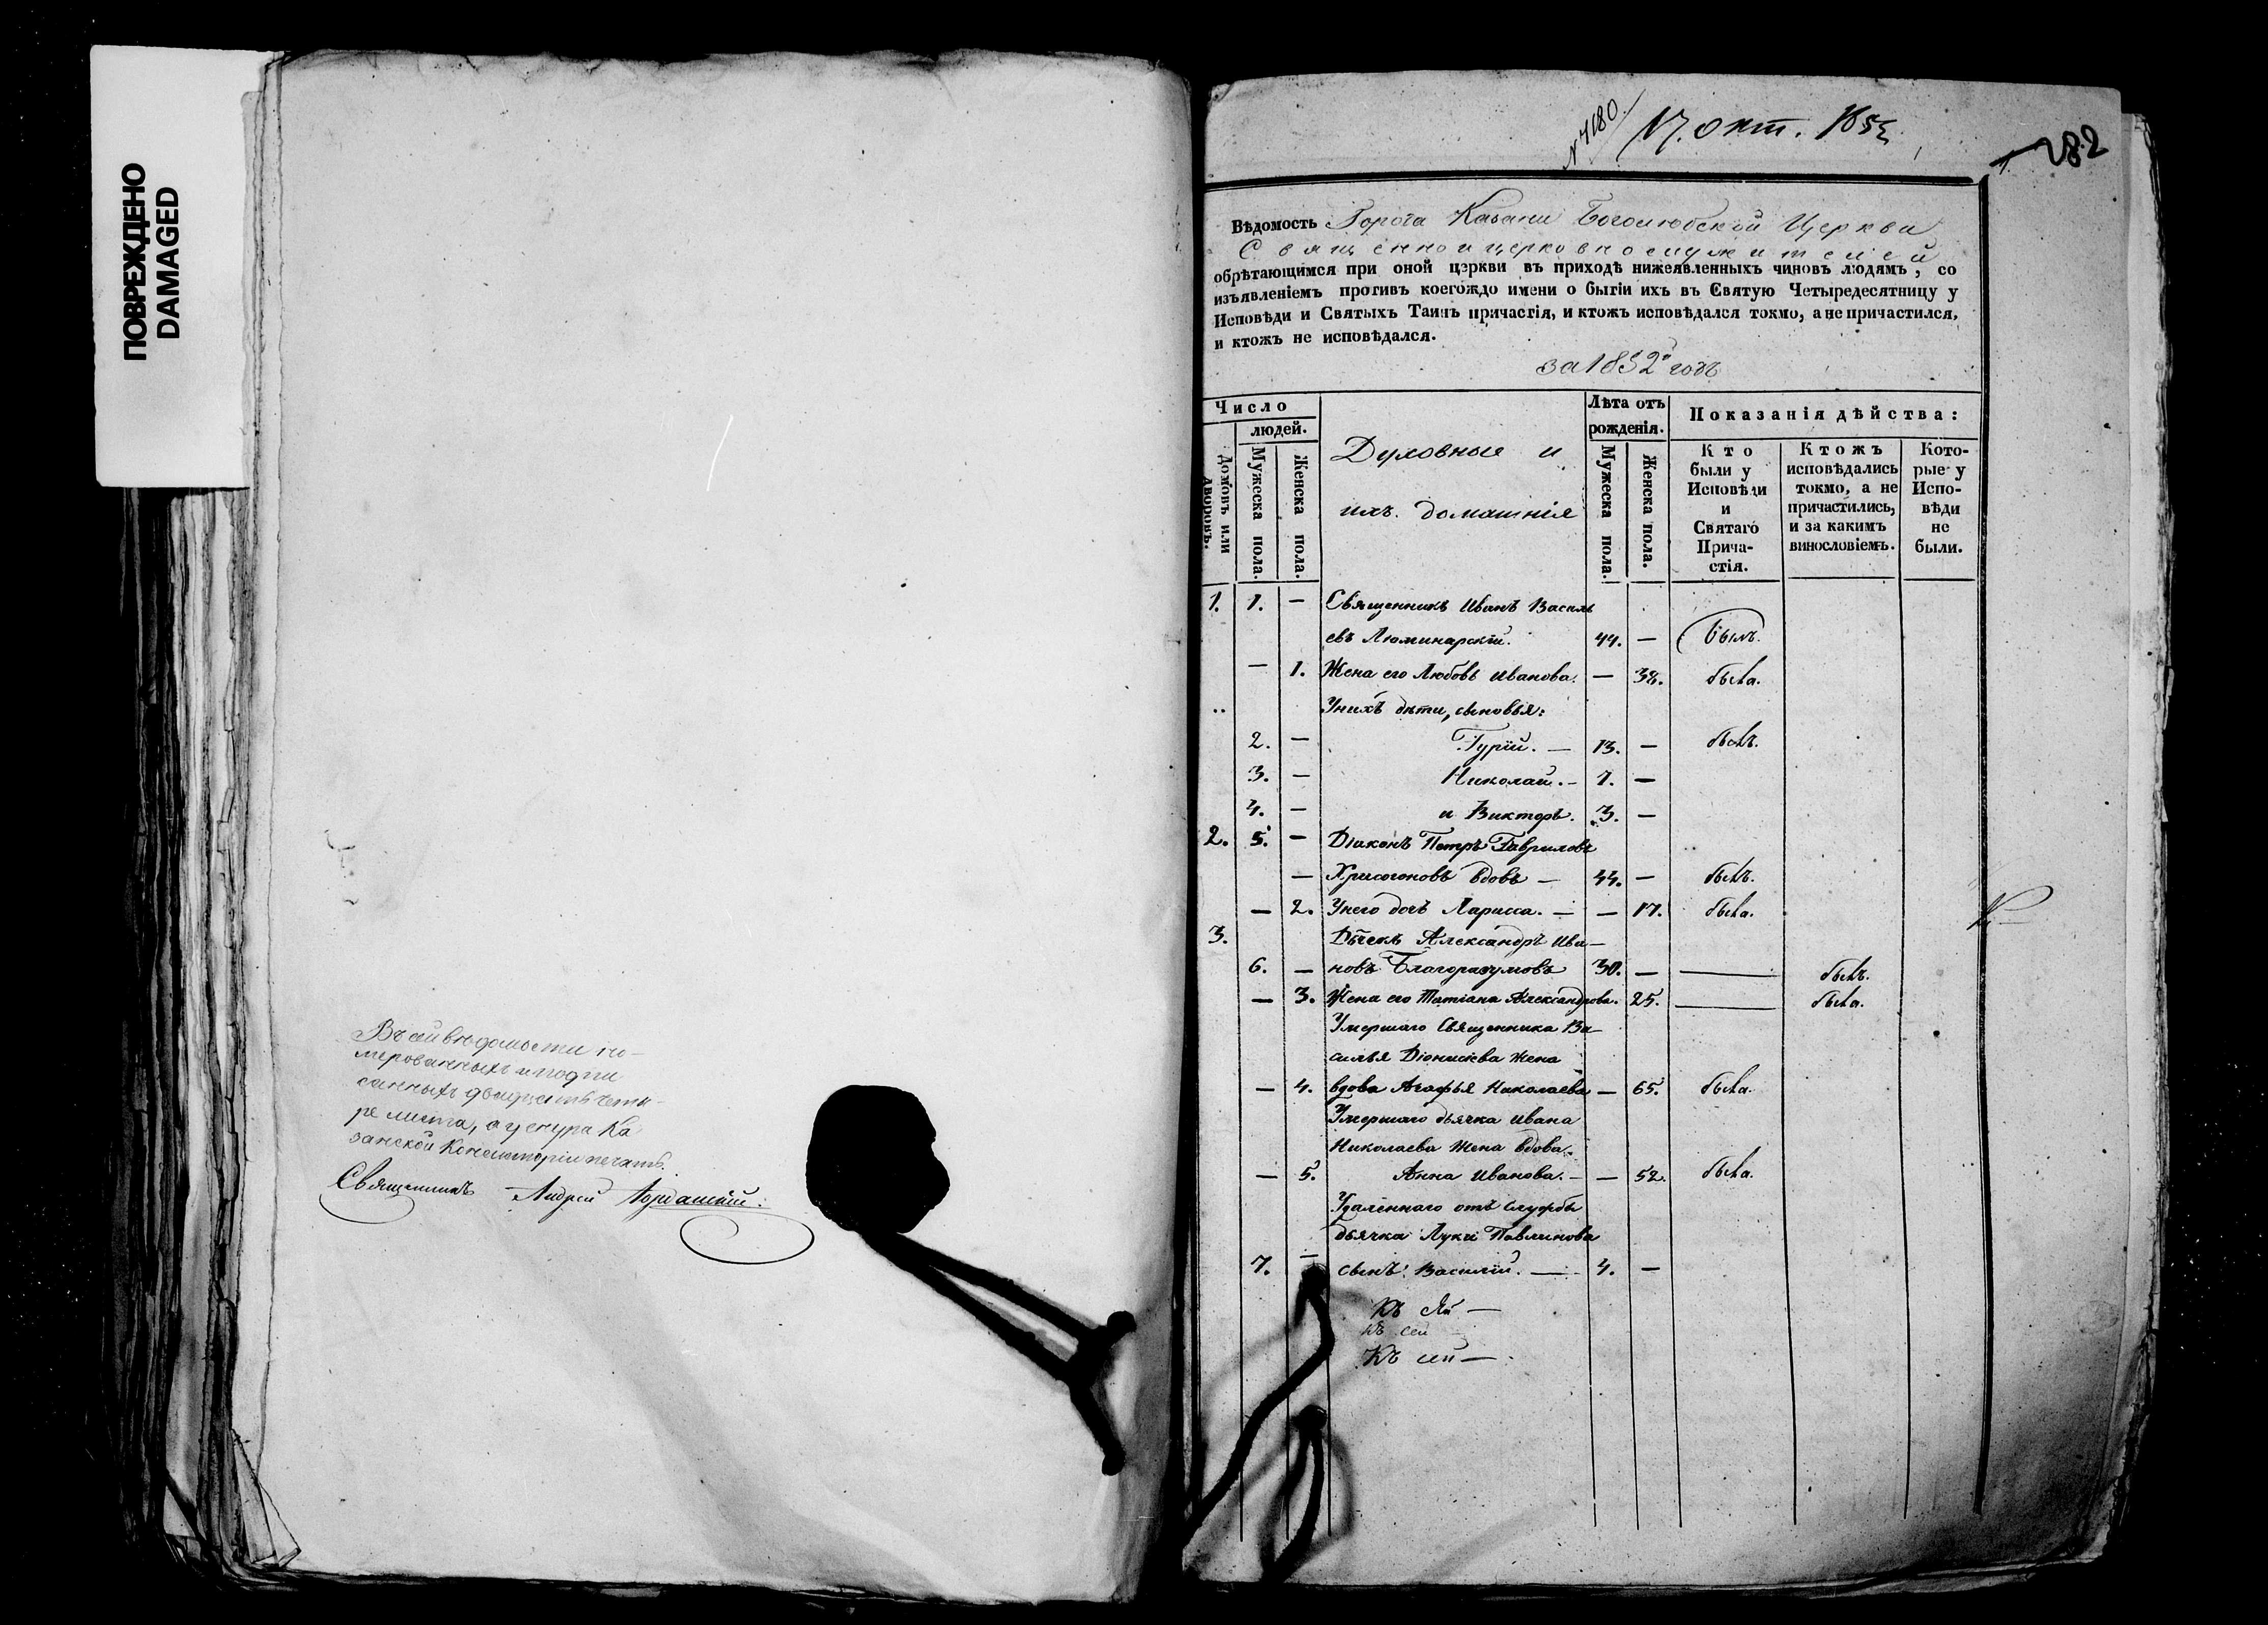 ПОВРЕЖДЕНО
DAMAGED
Въ сей вѣдомости но-
мерованныхъ и подпи
санныхъ двадцать четы-
ре листа, а у снура Ка
занской Консисторіи печать.
Священникъ Андрей
№ 4180. 17. окт. 1852
1. 282
Вѣдомость Города Казани Боголюбской Церкви
Священно и церковнослужителей
обрѣтающимся при оной церкви въ приходѣ нижеявленныхъ чиновъ людямъ, со
изъявленіемъ противъ коегождо имени о бытіи ихъ въ Святую Четыредесятницу у
Исповѣди и Святыхъ Таинъ причастія, и ктожъ исповѣдался токмо, а не причастился,
и ктожъ не исповѣдался.
за 1852й годъ
Число
людей.
Домовъ или дворовъ.
Мужеска пола.
Женска пола.
Духовные и
ихъ домашніе
Лѣта отъ
рожденія.
Мужеска пола.
Женска пола.
Показанія дѣйства:
Кто
были у
Исповѣди
и
Святаго
Прича-
стія.
Ктожъ
исповѣдались
токмо, а не
причастились,
и за какимъ
винословіемъ.
Кото-
рые у
Испо-
вѣди
не
были.
1. 1. — Священникъ Иванъ Василь
евъ Люминарскій. 44. — былъ.
— 1. Жена его Любовь Иванова. — 38. была.
У нихъ дѣти, сыновья:
2. — Гурій. — 13. — былъ.
3. — Николай. — 7. —
4. — и Викторъ. 3. —
2. 5. — Діаконъ Петръ Гавриловъ
— Хрисогоновъ вдовъ — 44. — былъ.
— 2. У него дочь Ларисса. — — 17. была.
3. Дьячекъ Александръ Ива-
6. — новъ Благоразумовъ 30. — — былъ.
— 3. Жена его Татіана Александрова. 25. — была.
Умершаго Священника Ва-
силья Діонисіева жена
— 4. вдова Агафья Николаева — 65. была.
Умершаго дьячка Ивана
Николаева жена вдова
— 5. Анна Иванова. — — 52. была.
Удаленнаго отъ службы
дьячка Луки Павлинова
7. — сынъ: Василій. — 4. —
Къ сей —
Къ сей
Къ сей —